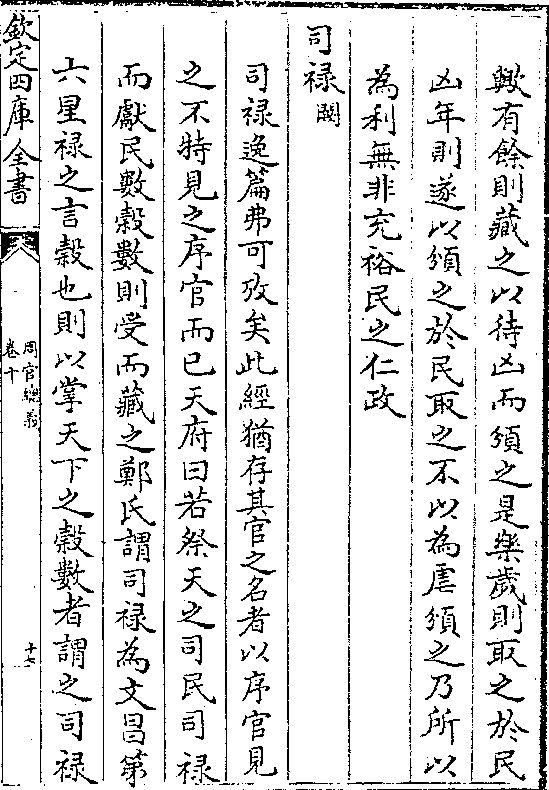 歟有餘則藏之以待凶而頒之是樂歲則取之於民
凶年則遂以頒之於民取之不以為虐頒之乃所以
為利無非充裕民之仁政
司禄闕
司禄逸篇弗可攷矣此經猶存其官之名者以序官見
之不特見之序官而已天府曰若祭天之司民司禄
而獻民數穀數則受而藏之鄭氏謂司禄為文昌第
六星禄之言穀也則以掌天下之穀數者謂之司禄
欽定四庫全書
周官總義
卷十
十七